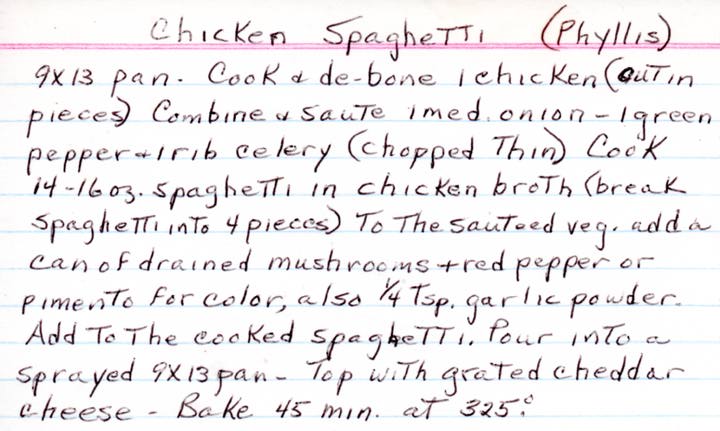 Chicken Spaghetti (Phyllis)
9x13 pan. Cook & de-bone 1 chicken (cut in
pieces) Combine & saute 1 med. onion - 1 green
pepper & 1 rib celery (chopped Thin) Cook
14-16 oz. spaghetti in chicken broth (break
spaghetti into 4 pieces) To The sauteed veg. add a
can of drained mushrooms + red pepper or
pimento for color, also 1/4 Tsp. garlic powder.
Add To The cooked spaghetti. Pour into a
sprayed 9x13 pan - Top with grated cheddar
cheese - Bake 45 min. at 325°.